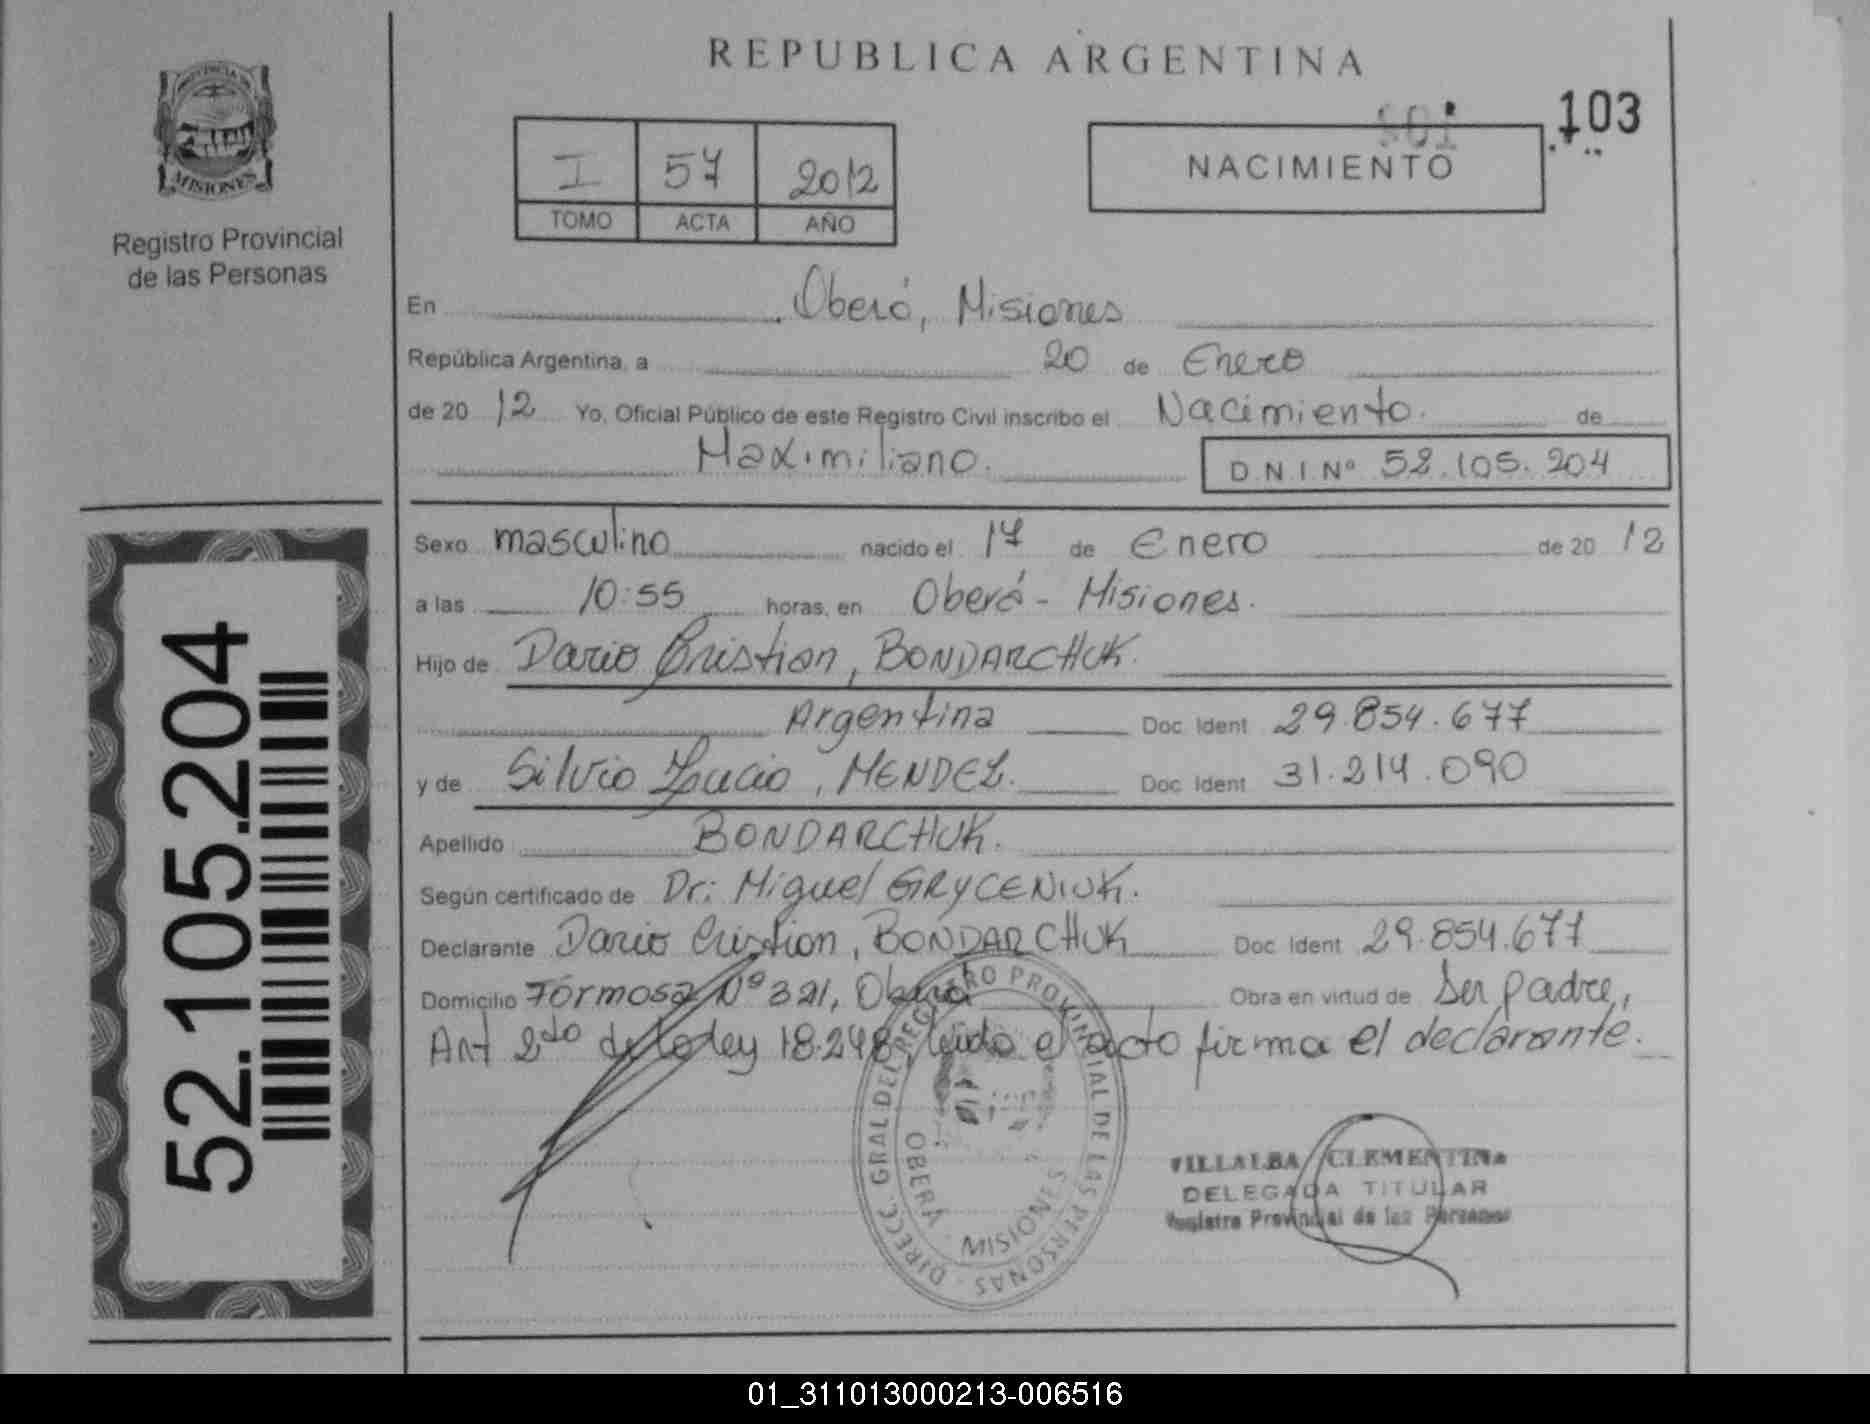 REPUBLICA ARGENTINA
103
PROVINCIA DE
MISIONES
Registro Provincial
de las Personas
I 57 2012
TOMO ACTA AÑO
NACIMIENTO
En Oberá, Misiones
República Argentina, a 20 de Enero
de 20 12 Yo, Oficial Público de este Registro Civil inscribo el Nacimiento. de
Maximiliano.
D.N.I.Nº 52.105.204
Sexo masculino nacido el 17 de Enero de 20 12
a las 10:55 horas, en Oberá - Misiones.
Hijo de Dario Cristian, BONDARCHUK.
Argentina Doc Ident 29.854.677
y de Silvia Lucia, MENDEZ. Doc Ident 31.214.090
Apellido BONDARCHUK.
Según certificado de Dr: Miguel GRYCENIUK.
Declarante Dario Cristian, BONDARCHUK Doc Ident 29.854.677
Domicilio Formosa Nº 321, Oberá Obra en virtud de Ser padre,
Art 2do de la ley 18.248, leida el acto firma el declarante.
52.105.204
DIRECC. GRAL DEL REGISTRO PROVINCIAL DE LAS PERSONAS
OBERÁ MISIONES
VILLALBA CLEMENTINA
DELEGADA TITULAR
Registro Provincial de las Personas
01_311013000213-006516